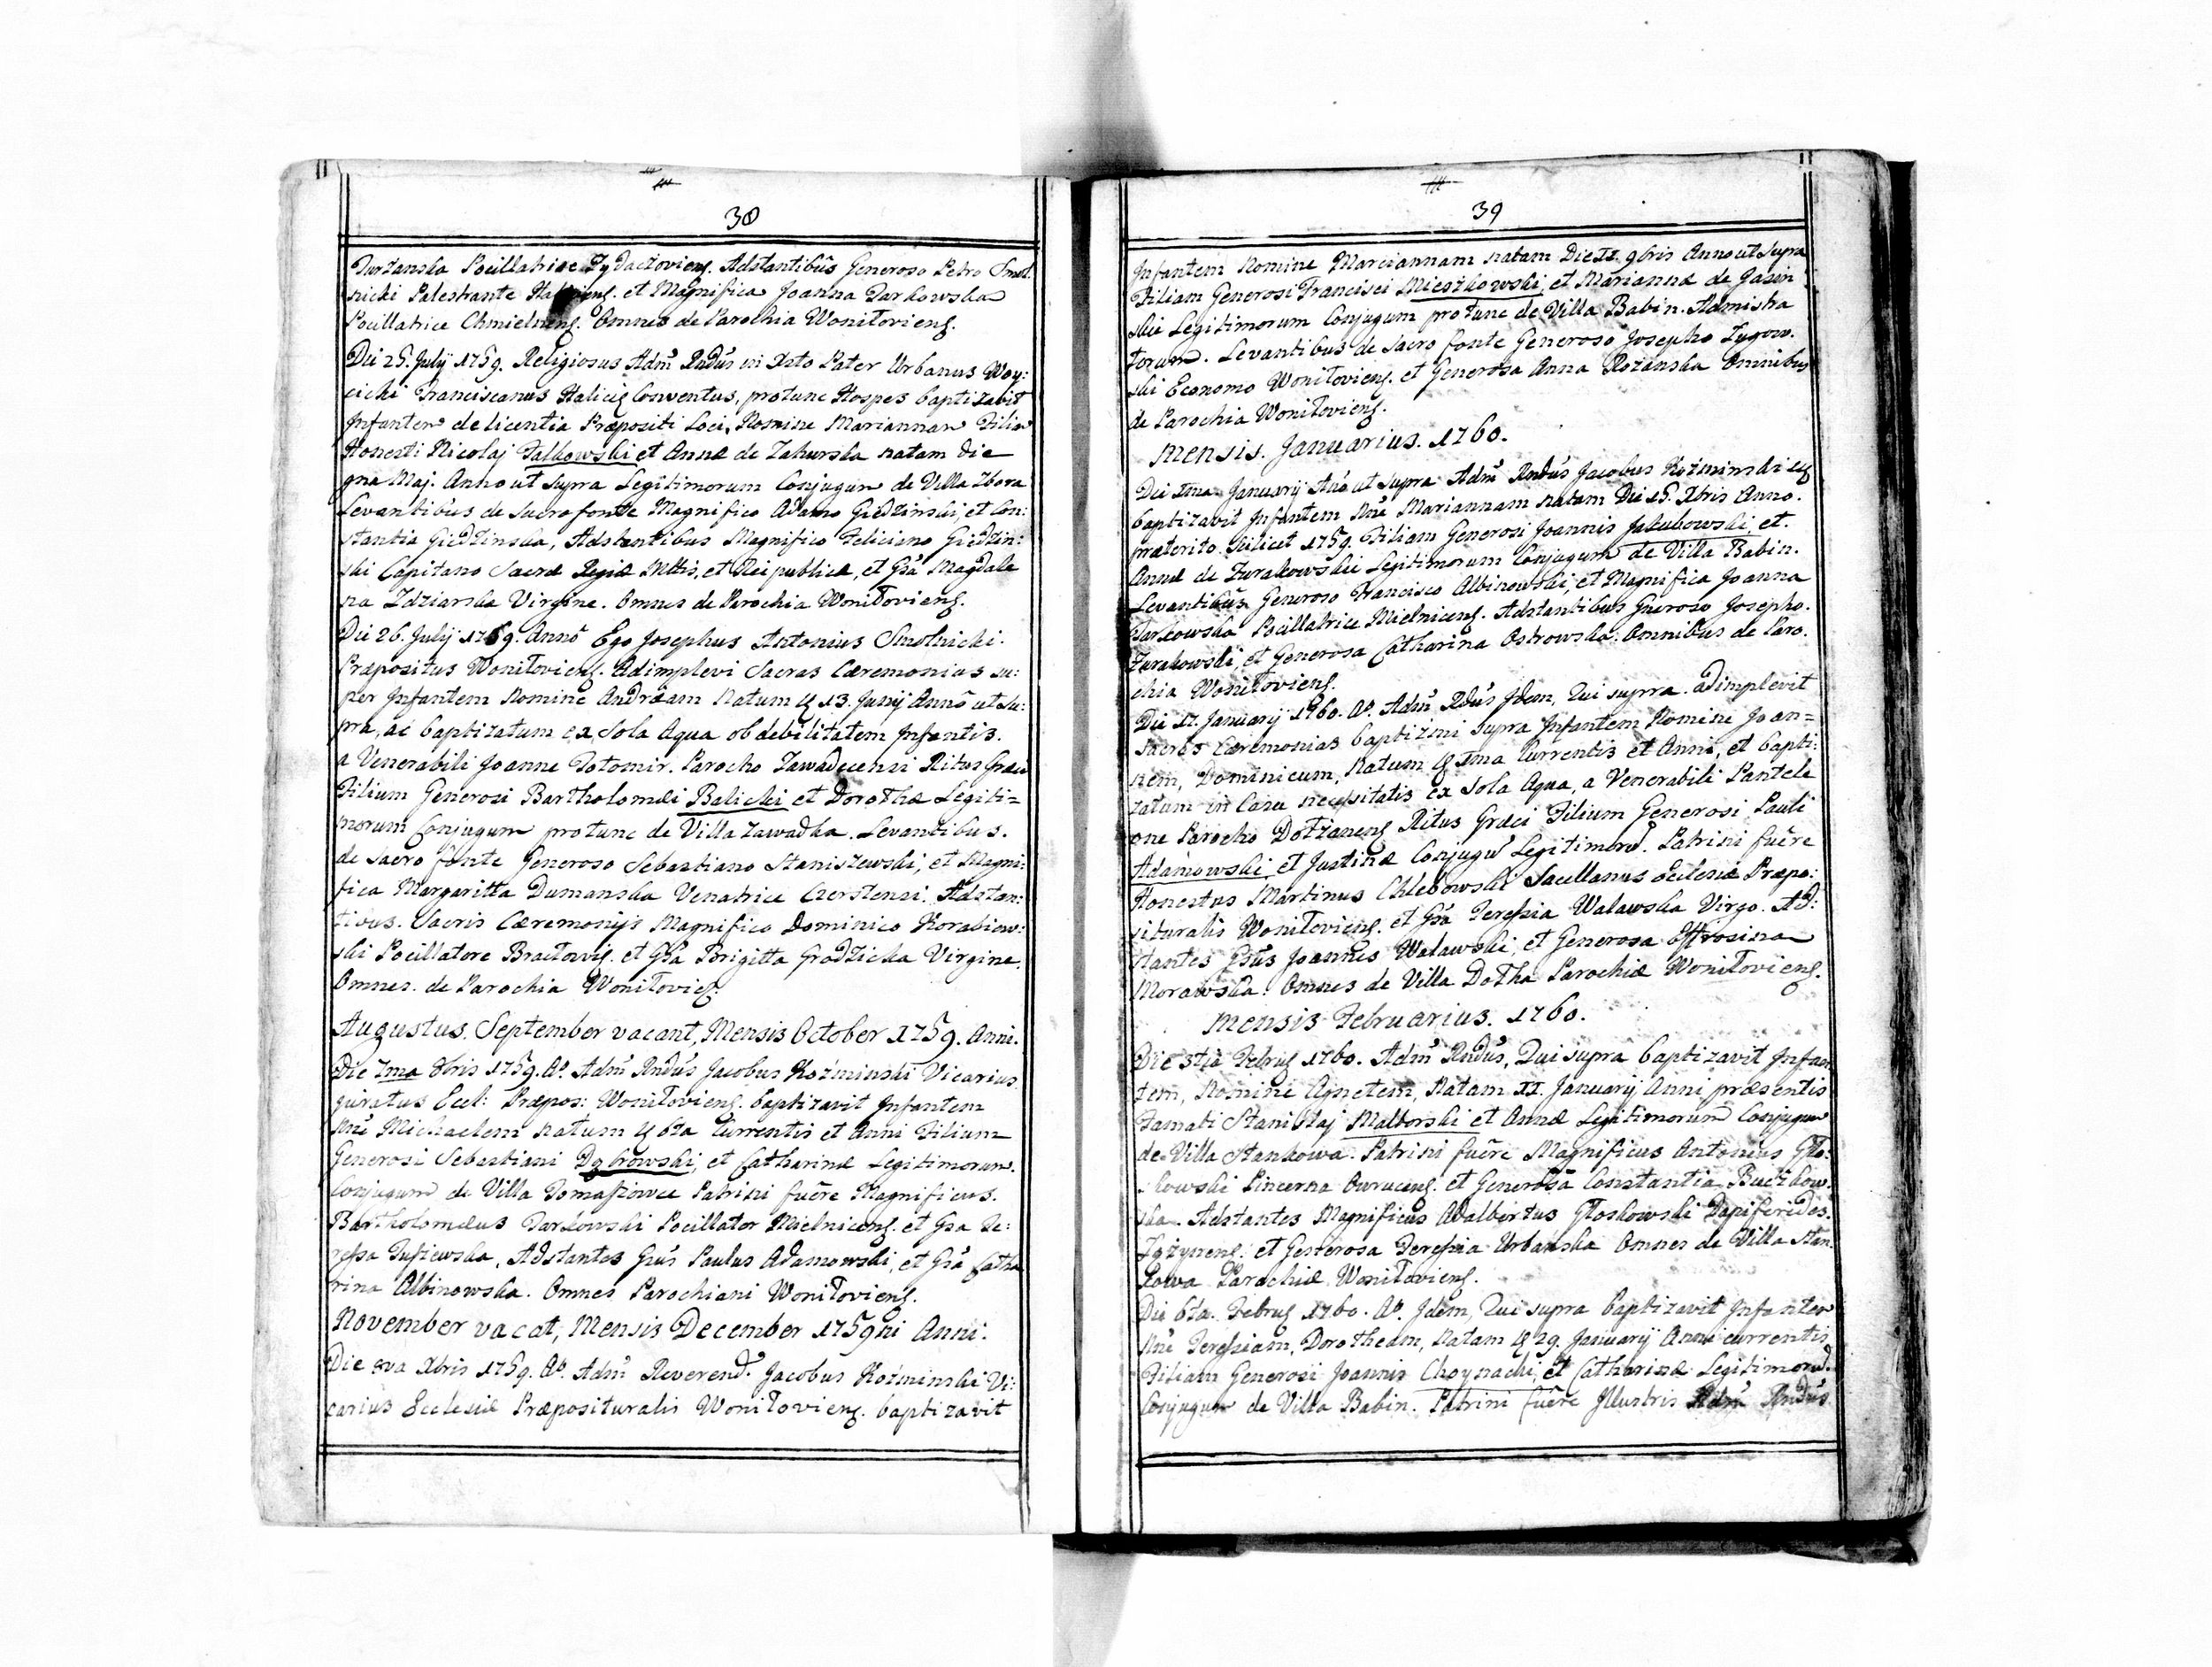 38
Turżanska Pocillatrice Żydaczoviens. Adstantibus Generoso Petro Smol:
nicki Palestrante et Magnifica Joanna Tarkowska
Pocillatrice Chmielnens. Omnes de Parochia Woniłoviens.
Die 25. July 1759. Religiosus Adm̃ Rndus in Xsto Pater Urbanus Woy:
cicki Franciscanus Halicis Conventus, protunc Hospes baptizavit
Infantem de licentia Præpositi Loci, Nomine Mariannam Filiam
Honesti Nicolaj Falkowski et Annæ de Zahurska natam die
9na Maj. Anno ut supra Legitimorum Conjugum de Villa Zbora
Levantibus de Sacro fonte Magnifico Adamo Giedzinski, et Con:
stantia Giedzinska, Adstantibus Magnifico Feliciano Giedzin:
ski Capitano Sacræ Regiæ Mttis, et Reipublicæ, et Gsa Magdale
na Zdziarska Virgine. Omnes de Parochia Woniłoviens.
Die 26. July 1759. Anno Ego Josephus Antonius Smolnicki.
Præpositus Woniłoviens. Adimplevi Sacras Cæremonias su:
per Infantem Nomine Andræam Natum 13. Junij Anno ut su:
pra, ac baptizatum ex Sola Aqua ob debilitatem Infantis.
a Venerabili Joanne Totomir. Parocho Zawadecensi Ritus Græci
Filium Generosi Bartholomæi Balicki et Dorothæ Legiti=
morum Conjugum protunc de Villa Zawadka. Levantibus.
de sacro fonte Generoso Sebastiano Staniszewski, et Magni:
fica Margaritta Dumanska Venatrice Czerstensi. Adstan:
tibus. Sacris Cæremonijs Magnifico Dominico Korabiew:
ski Pocillatore Bracłovis. et Gsa Brigitta Grodzicka Virgine.
Omnes. de Parochia Woniłovies.
Augustus. September vacant, Mensis October 1759. Anni.
Die 7ma 8bris 1759. Ao. Adm̃ Rndus Jacobus Koźminski Vicarius
juratus Eccl: Præpos: Woniłoviens. baptizavit Infantem
Nne Michaelem natum 6ta Currentis et Anni Filium
Generosi Sebastiani Dąbrowski, et Catharinæ Legitimorum.
Conjugum de Villa Tomaszowce Patrini fuere Magnificus.
Bartholomæus Tarkowski Pocillator Mielnicens. et Gsa Te:
ressa Tusiewska, Adstantes Gsus Paulus Adamowski, et Gsa Catha
rina Albinowska. Omnes Parochiani Woniłoviens.
November vacat, Mensis December 1759ni Anni.
Die 8va Xbris 1759. Ao. Adm̃ Reverend. Jacobus Koźminski Vi:
carius Ecclesiæ Præposituralis Woniłoviens. baptizavit
39
Infantem Nomine Marciannam natam Die II. 9bris Anno ut supra
Filiam Generosi Francisci Mieszkowski, et Mariannæ de Gasin
skie Legitimorum Conjugum protunc de Villa Babin. Admistra
torum. Levantibus de sacro fonte Generoso Josepho Zygow.
ski Economo Woniłoviens. et Generosa Anna Rożanska Omnibus
de Parochia Woniłoviens.
Mensis. Januarius. 1760.
Die Ima Januarij Ano ut supra Adm̃ Rndus Jacobus Koźminski
baptizavit Infantem Nne Mariannam natam Die 15. Xbris Anno.
præterito Scilicet 1759. Filiam Generosi Joannis Jakubowski, et.
Annæ de Żurakowskie Legitimorum Conjugum de Villa Babin.
Levantibus Generoso Francisco Albinowski, et Magnifica Joanna
Tarkowska Pocillatrice Mielnicens. Adstantibus Gneroso Josepho.
Żurakowski, et Generosa Catharina Ostrowska. Omnibus de Paro.
chia Woniłoviens.
Die 17. Januarij 1760. Ao. Adm̃ Rdus Idem, Qui supra. adimplevit
sacras Cæremonias baptizmi supra Infantem Nomine Joan=
nem, Dominicum, Natum Ima Currentis et Anni, et bapti:
zatum in Casu necessitatis ex sola Aqua, a Venerabili Pantele
one Parocho Dołżanens Ritus Græci Filium Generosi Pauli
Adamowski et Justinæ Conjugũ Legitimorũ. Patrini fuere
Honestus Martinus Chlebowski Sacellanus Ecclesiæ Præpo:
situralis Woniłoviens. et Gsa Teressia Walawska Virgo. Ad:
stantes Gsus Joannes Walawski, et Generosa Effrosina
Morawska. Omnes de Villa Dołha Parochiæ Woniłoviens.
Mensis Februarius. 1760.
Die 3tia Febrs 1760. Adm̃ Rndus, Qui supra baptizavit Infan
tem, Nomine Agnetem, Natam II. Januarij Anni præsentis
Famati Stanislaj Malborski et Annæ Legitimorum Conjugum
de Villa Stankowa. Patrini fuere Magnificus Antonius Gło:
skowski Pincerna Owrucens. et Generosa Constantia Buczkow.
ska. Adstantes Magnificus Adalbertus Głoskowski Dapiferides.
et Generosa Teressia Urbanska Omnes de Villa Stan.
kowa Parochiæ Woniłoviens.
Die 6ta. Febrs 1760. Ao. Idem, Qui supra baptizavit Infantem
Nne Teressiam, Dorotheam, Natam 29. Januarij Anni currentis
Filiam Generosi Joannis Choynacki, et Catharinæ Legitimorũ.
Conjugum de Villa Babin. Patrini fuere Illustris Adm̃ Rndus